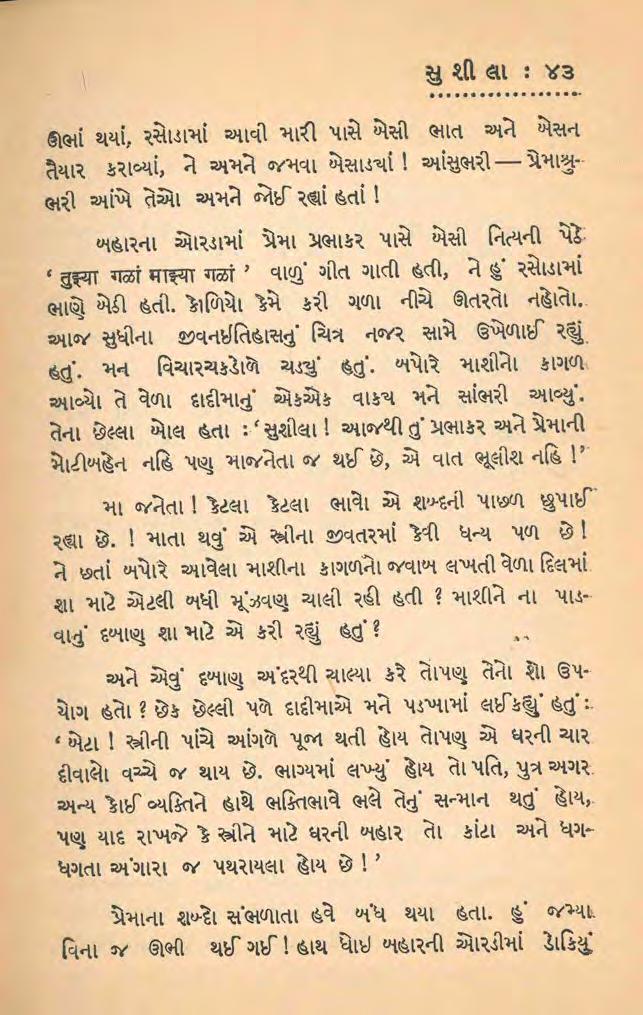 સુ શી લા : ૪૩
ઊભાં થયાં, રસોડામાં આવી મારી પાસે બેસી ભાત અને બેસન
તૈયાર કરાવ્યાં, ને અમને જમવા બેસાડ્યાં ! આંસુભરી — પ્રેમાશ્રુ-
ભરી આંખે તેઓ અમને જોઈ રહ્યાં હતાં !
બહારના ઓરડામાં પ્રેમા પ્રભાકર પાસે બેસી નિત્યની પેઠે
‘ तुझ्या गळां माझ्या गळां ’ વાળું ગીત ગાતી હતી, ને હું રસોડામાં
ભાણે બેઠી હતી. કોળિયો કેમે કરી ગળા નીચે ઊતરતો નહોતો.
આજ સુધીના જીવનઇતિહાસનું ચિત્ર નજર સામે ઉખેળાઈ રહ્યું
હતું. મન વિચારચકડોળે ચડ્યું હતું. બપોરે માશીનો કાગળ
આવ્યો તે વેળા દાદીમાનું એકએક વાકય મને સાંભરી આવ્યું.
તેના છેલ્લા બોલ હતા : ‘સુશીલા ! આજથી તું પ્રભાકર અને પ્રેમાની
મોટીબહેન નહિ પણ માજનેતા જ થઈ છે, એ વાત ભૂલીશ નહિ !’
મા જનેતા ! કેટલા કેટલા ભાવો એ શબ્દની પાછળ છુપાઈ
રહ્યા છે. ! માતા થવું એ સ્ત્રીના જીવતરમાં કેવી ધન્ય પળ છે !
ને છતાં બપોરે આવેલા માશીના કાગળનો જવાબ લખતી વેળા દિલમાં
શા માટે એટલી બધી મૂંઝવણ ચાલી રહી હતી ? માશીને ના પાડ-
વાનું દબાણ શા માટે એ કરી રહ્યું હતું ?
અને એવું દબાણ અંદરથી ચાલ્યા કરે તોપણ તેનો શો ઉપ-
યોગ હતો ? છેક છેલ્લી પળે દાદીમાએ મને પડખામાં લઈ કહ્યું હતું :
‘ બેટા ! સ્ત્રીની પાંચે આંગળે પૂજા થતી હોય તોપણ એ ઘરની ચાર
દીવાલો વચ્ચે જ થાય છે. ભાગ્યમાં લખ્યું હોય તો પતિ, પુત્ર અગર
અન્ય કોઈ વ્યક્તિને હાથે ભક્તિભાવે ભલે તેનું સન્માન થતું હોય,
પણ યાદ રાખજે કે સ્ત્રીને માટે ઘરની બહાર તો કાંટા અને ધગ-
ધગતા અંગારા જ પથરાયલા હોય છે ! ’
પ્રેમાના શબ્દો સંભળાતા હવે બંધ થયા હતા. હું જમ્યા
વિના જ ઊભી થઈ ગઈ ! હાથ ધોઇ બહારની ઓરડીમાં ડોકિયું